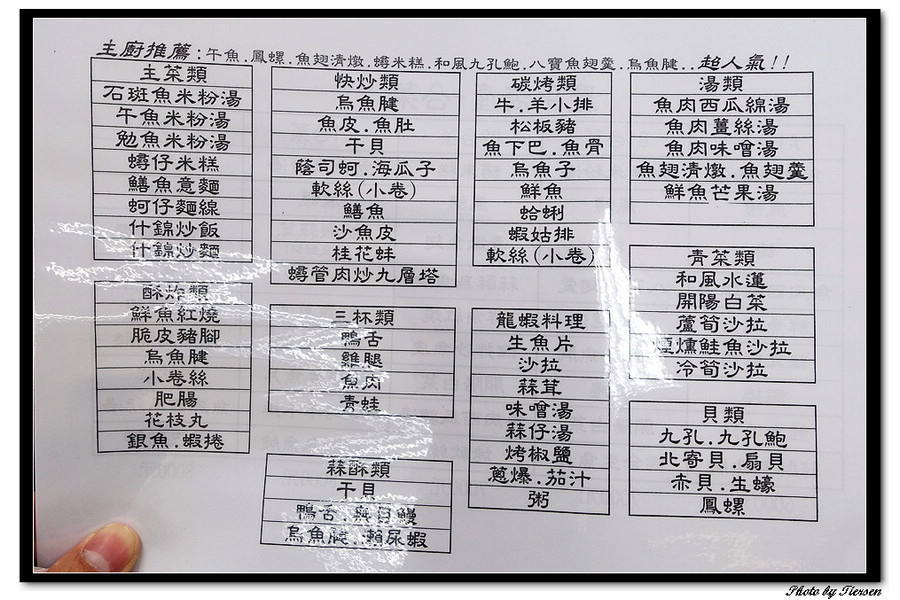 主廚推薦:午魚.鳳螺.魚翅清燉.蟳米糕.和風九孔鮑.八寶魚翅羹.烏魚腱..超人氣!!
主菜類
石斑魚米粉湯
午魚米粉湯
勉魚米粉湯
蟳仔米糕
鱔魚意麵
蚵仔麵線
什錦炒飯
什錦炒麵
酥炸類
鮮魚紅燒
脆皮豬腳
烏魚腱
小卷絲
肥腸
花枝丸
銀魚.蝦捲
快炒類
烏魚腱
魚皮.魚肚
干貝
蔭司蚵.海瓜子
軟絲(小卷)
鱔魚
沙魚皮
桂花蚌
蟳管肉炒九層塔
三杯類
鴨舌
雞腿
魚肉
青蛙
蒜酥類
干貝
鴨舌.無目鰻
烏魚腱.瀨尿蝦
碳烤類
牛.羊小排
松板豬
魚下巴.魚骨
烏魚子
鮮魚
蛤蜊
蝦姑排
軟絲(小卷)
龍蝦料理
生魚片
沙拉
蒜茸
味噌湯
蒜仔湯
烤椒鹽
蔥爆.茄汁
粥
湯類
魚肉西瓜綿湯
魚肉薑絲湯
魚肉味噌湯
魚翅清燉.魚翅羹
鮮魚芒果湯
青菜類
和風水蓮
開陽白菜
蘆筍沙拉
煙燻鮭魚沙拉
冷筍沙拉
貝類
九孔.九孔鮑
北寄貝.扇貝
赤貝.生蠔
鳳螺
Photo by Tiersen